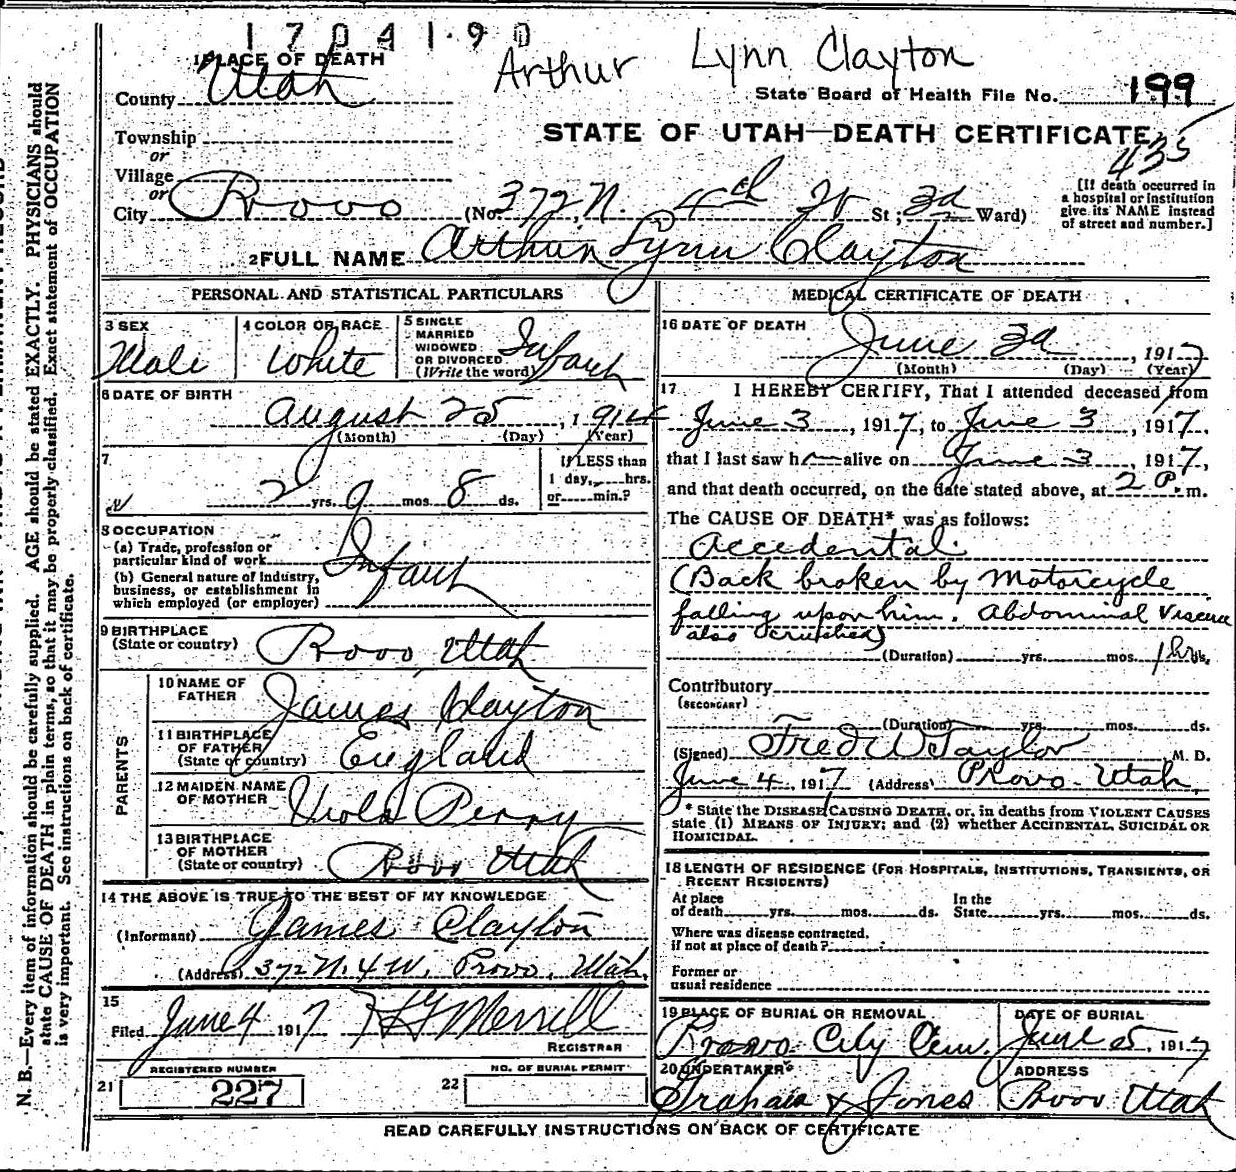 1704190
Arthur Lynn Clayton
1 PLACE OF DEATH
County Utah
State Board of Health File No. 199
Township
STATE OF UTAH—DEATH CERTIFICATE
435
or
Village
or
City Provo (No. 372 N. 4th W St; 3d Ward)
[If death occurred in
a hospital or institution
give its NAME instead
of street and number.]
2 FULL NAME Arthur Lynn Clayton
PERSONAL AND STATISTICAL PARTICULARS
3 SEX
Male
4 COLOR OR RACE
White
5 SINGLE
MARRIED
WIDOWED
OR DIVORCED
(Write the word)
Infant
6 DATE OF BIRTH
August 25, 1914
(Month) (Day) (Year)
7
2 yrs. 9 mos. 8 ds.
If LESS than
1 day, hrs.
or min.?
8 OCCUPATION
(a) Trade, profession or
particular kind of work
(b) General nature of industry,
business, or establishment in
which employed (or employer)
Infant
9 BIRTHPLACE
(State or country) Provo, Utah
PARENTS
10 NAME OF
FATHER James Clayton
11 BIRTHPLACE
OF FATHER
(State or country) England
12 MAIDEN NAME
OF MOTHER Viola Penny
13 BIRTHPLACE
OF MOTHER
(State or country) Provo Utah
14 THE ABOVE IS TRUE TO THE BEST OF MY KNOWLEDGE
(Informant) James Clayton
(Address) 372 N. 4 W. Provo, Utah,
15
Filed June 4 1917 Merrill
REGISTRAR
21 REGISTERED NUMBER
227
22 NO. OF BURIAL PERMIT
MEDICAL CERTIFICATE OF DEATH
16 DATE OF DEATH
June 3d, 1917
(Month) (Day) (Year)
17 I HEREBY CERTIFY, That I attended deceased from
June 3, 1917, to June 3, 1917,
that I last saw h alive on June 3, 1917,
and that death occurred, on the date stated above, at 2 P. m.
The CAUSE OF DEATH* was as follows:
Accedental
(Back broken by Motorcycle
falling upon him. Abdominal
also crushed)
(Duration) yrs. mos. 1 hr ds.
Contributory
(SECONDARY)
(Duration) yrs. mos. ds.
(Signed) Fred W Taylor M. D.
June 4, 1917 (Address) Provo - Utah,
* State the DISEASE CAUSING DEATH, or, in deaths from VIOLENT CAUSES
state (1) MEANS OF INJURY; and (2) whether ACCIDENTAL, SUICIDAL OR
HOMICIDAL.
18 LENGTH OF RESIDENCE (FOR HOSPITALS, INSTITUTIONS, TRANSIENTS, OR
RECENT RESIDENTS)
At place
of death yrs. mos. ds.
In the
State yrs. mos. ds.
Where was disease contracted.
if not at place of death?
Former or
usual residence
19 PLACE OF BURIAL OR REMOVAL
Provo City Cem.
DATE OF BURIAL
June 5, 1917
20 UNDERTAKER
Graham & Jones
ADDRESS
Provo Utah
READ CAREFULLY INSTRUCTIONS ON BACK OF CERTIFICATE
N. B.—Every item of information should be carefully supplied. AGE should be stated EXACTLY. PHYSICIANS should
state CAUSE OF DEATH in plain terms, so that it may be properly classified. Exact statement of OCCUPATION
is very important. See instructions on back of certificate.